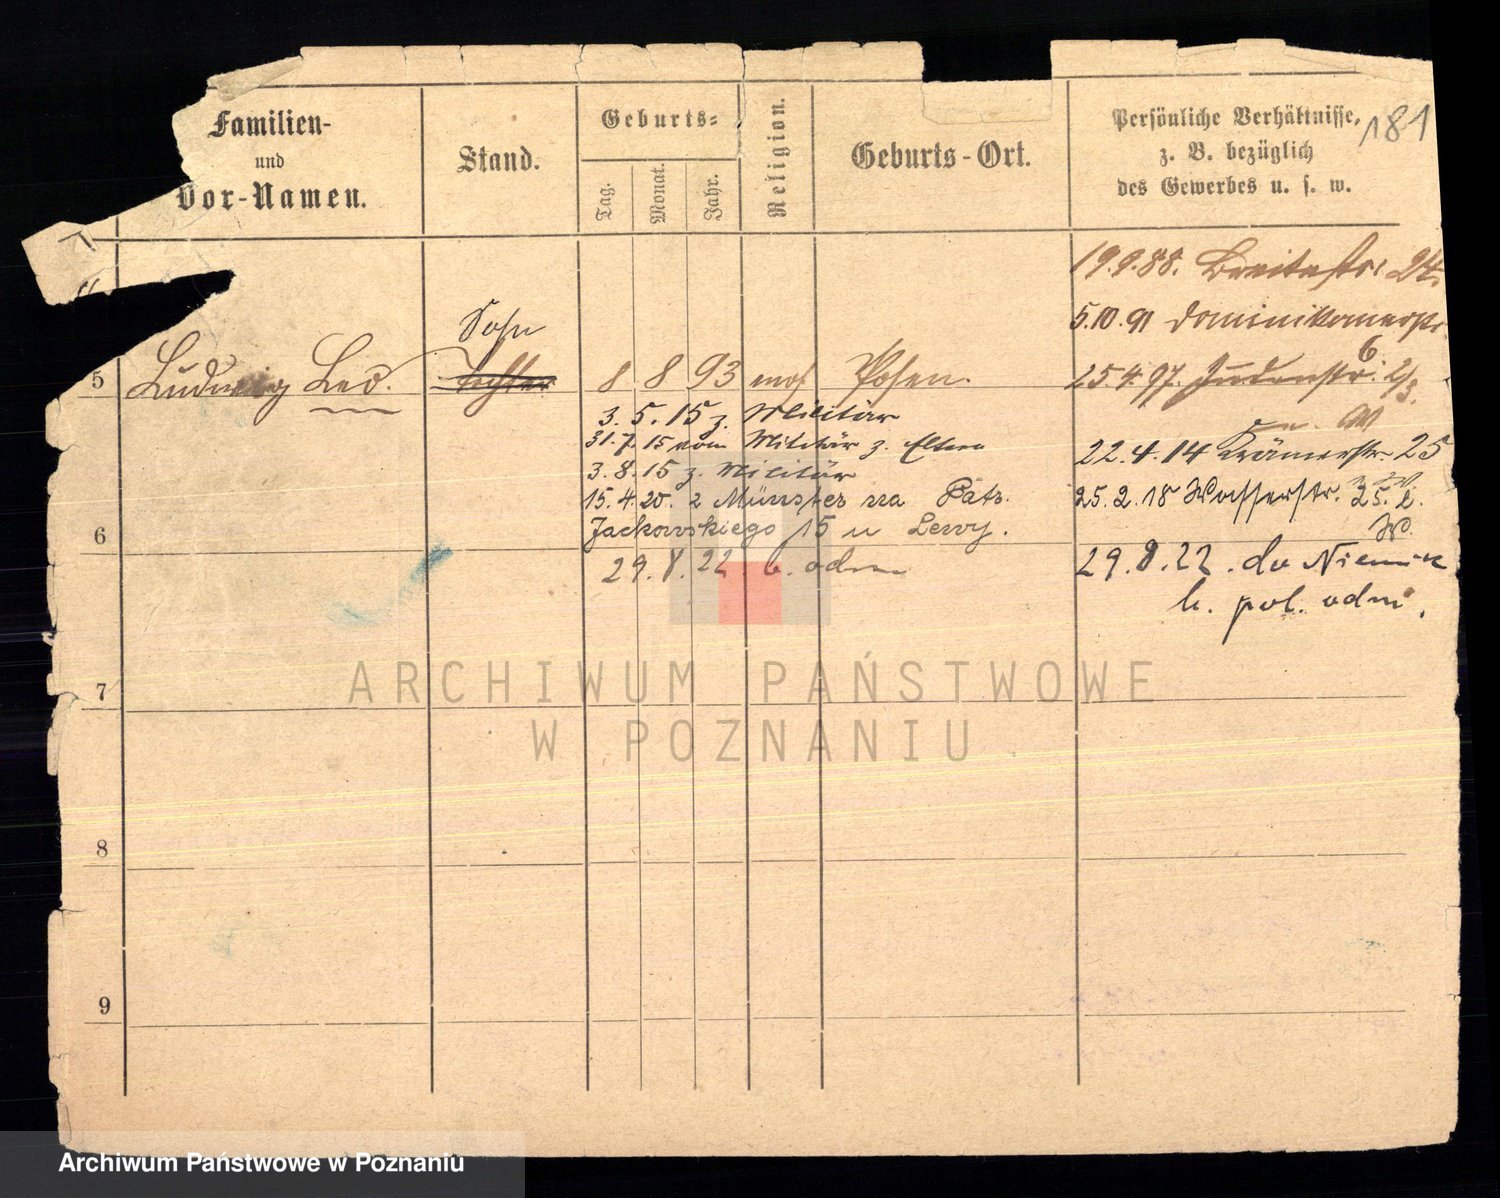 Familien-
und
Vor-Namen.
Stand.
Geburts-
Tag.
Monat.
Jahr.
Religion.
Geburts-Ort.
Persönliche Verhältnisse,
z. B. bezüglich
des Gewerbes u. s. w.
181
19.9.88. Breitestr. 24.
5.10.91 Dominikanerstr.
25.4.97. Judenstr.
22.4.14 Krämerstr. 25
25.2.18 Wasserstr. 25.
W.
29.8.22. do Niemiec
b. pol. odm.
5 Ludwig Leo. Sohn Tochter 8 8 93 mos Posen.
3.5.15 z. Militär
31.7.15 vom Militär z. Eltern
3.8.15 z. Militär
15.4.20. z Münster na
Jackowskiego 15 u Lewy.
29.8.22. b. odm
6
7
8
9
ARCHIWUM PAŃSTWOWE
W POZNANIU
Archiwum Państwowe w Poznaniu